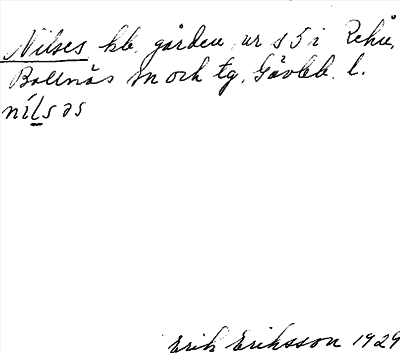 Nilses hb. gården nr 5 i Rehn,
Bollnäs sn och tg, Gävleb. l.
nilsəs
Erik Eriksson 1929